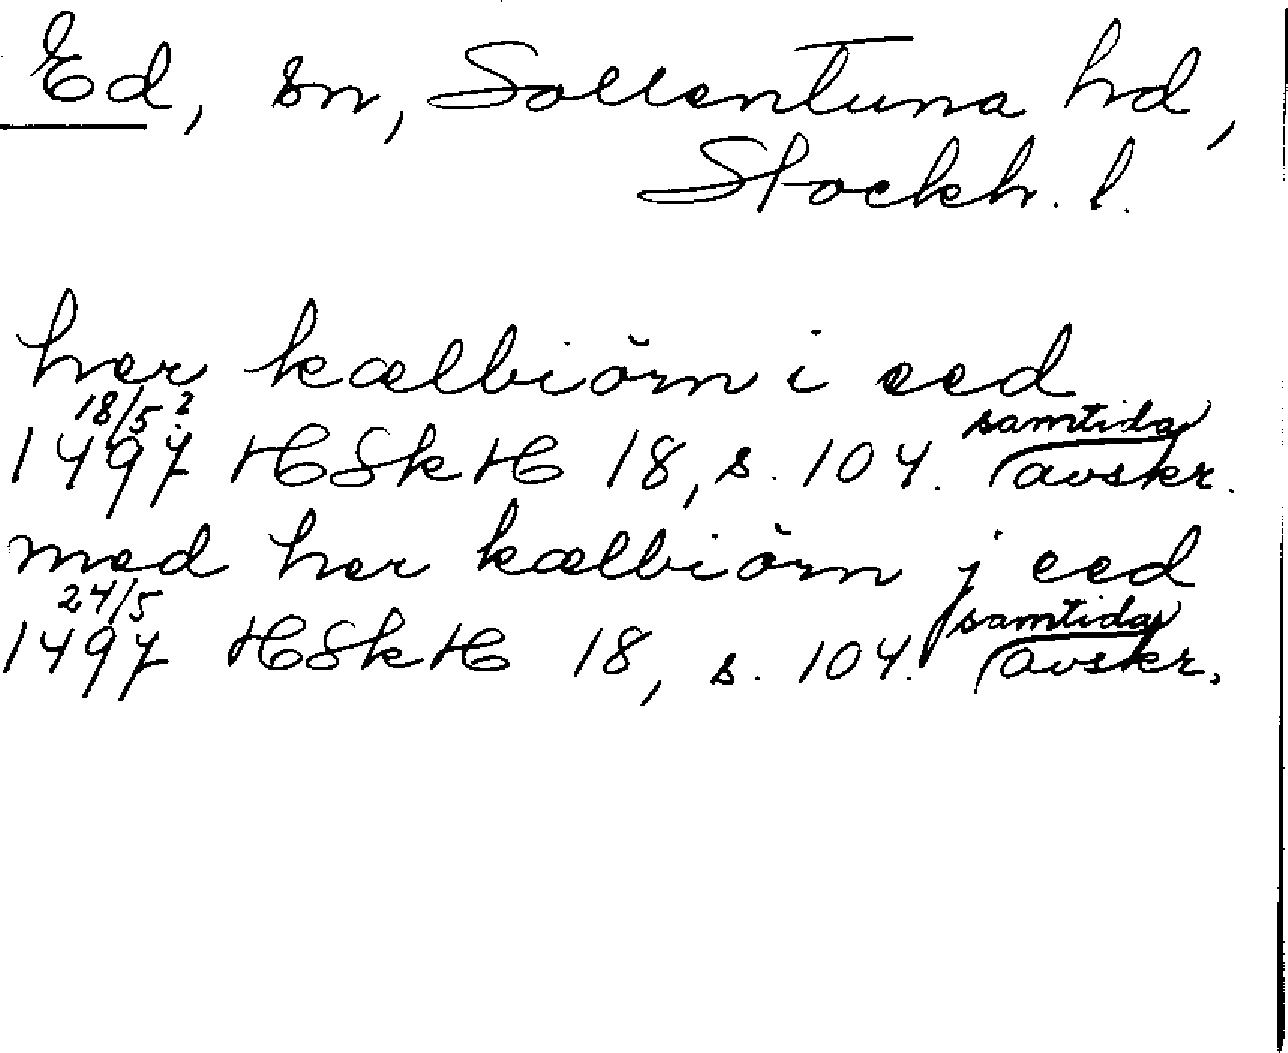 Ed, sn, Sollentuna hd,
Stockh. l.
her kælbiörn i eed
18/5 ?
1497 HSkH 18, s. 104. samtida avskr.
med her kælbiörn j eed
24/5
1497 HSkH 18, s. 104. samtida avskr.